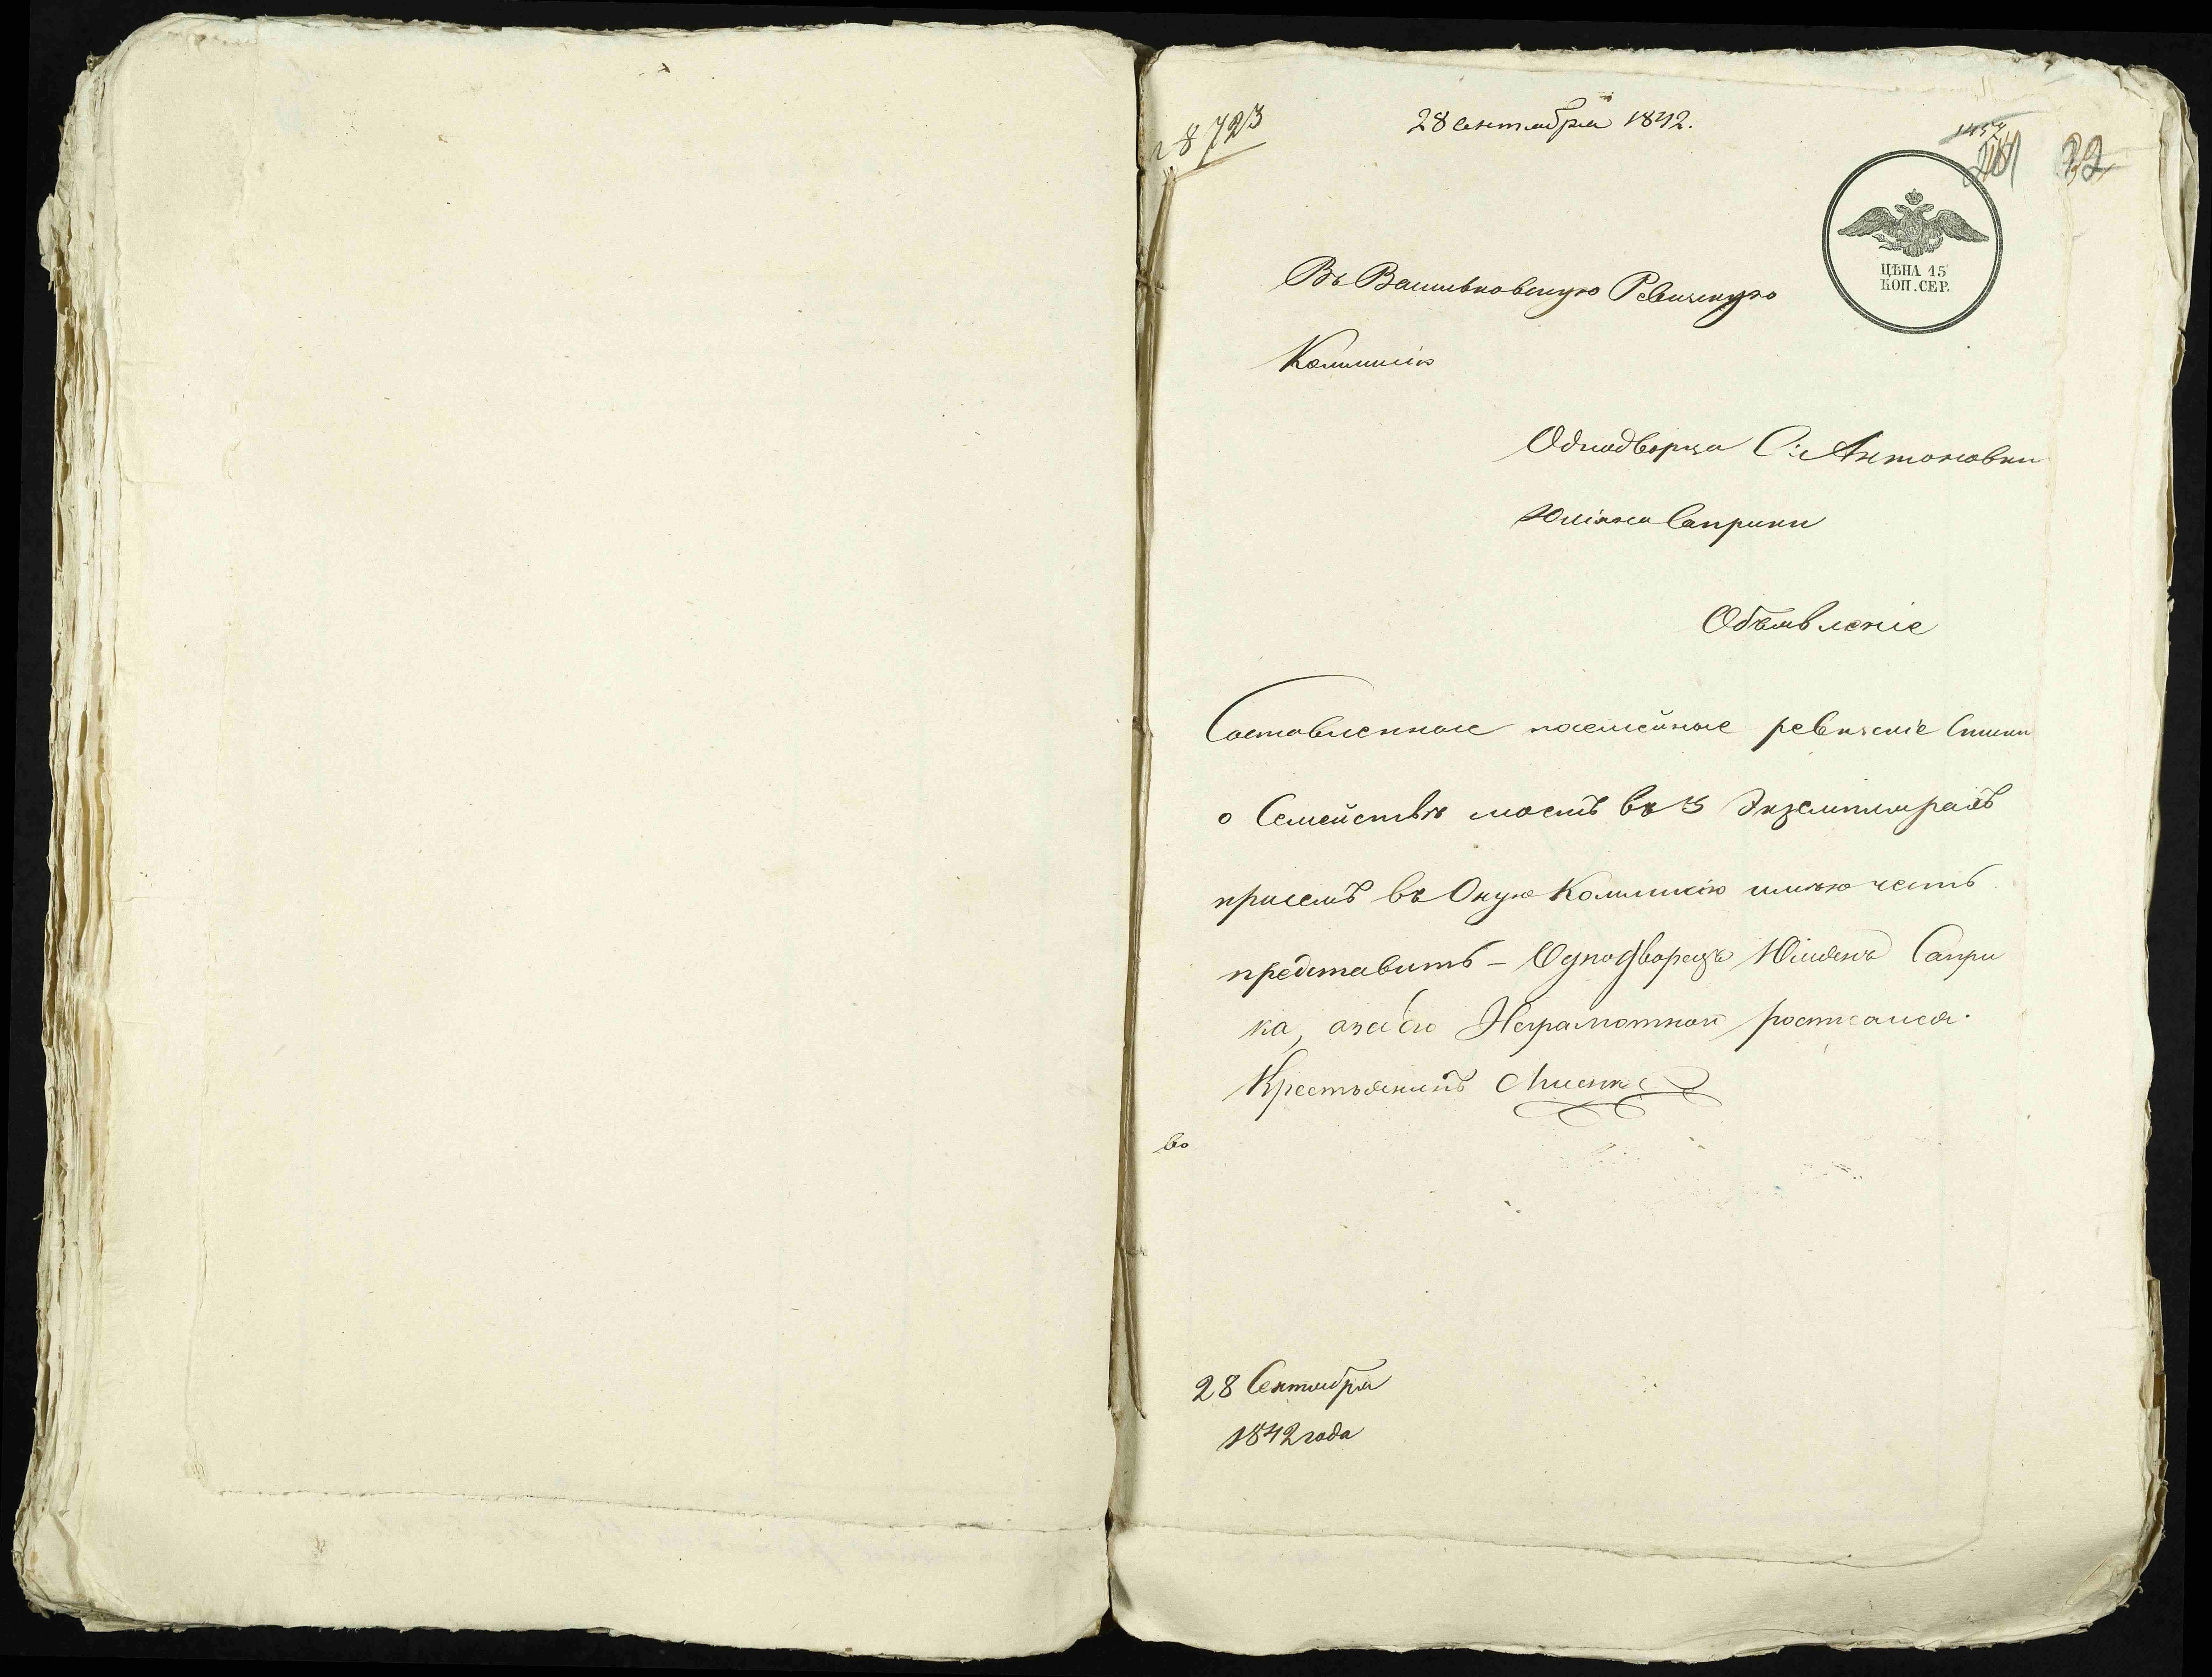 8723
28 Сентября 1842.
32
ЦѢНА 45
КОП. СЕР.
Въ Васильковскую Ревизскую
Коммисію
Однодворца С: Антоновки
Юліяна Саприки
Объявленіе
Составленные посемейные ревизскіе списки
о Семействѣ моемъ въ 3 Экземплярахъ
присемъ въ Оную Коммисію имѣю честь
представить – Однодворецъ Юліянъ Сапри
ка, азабго Неграмотной росписался.
Крестьянинъ
во
28 Сентября
1842 года